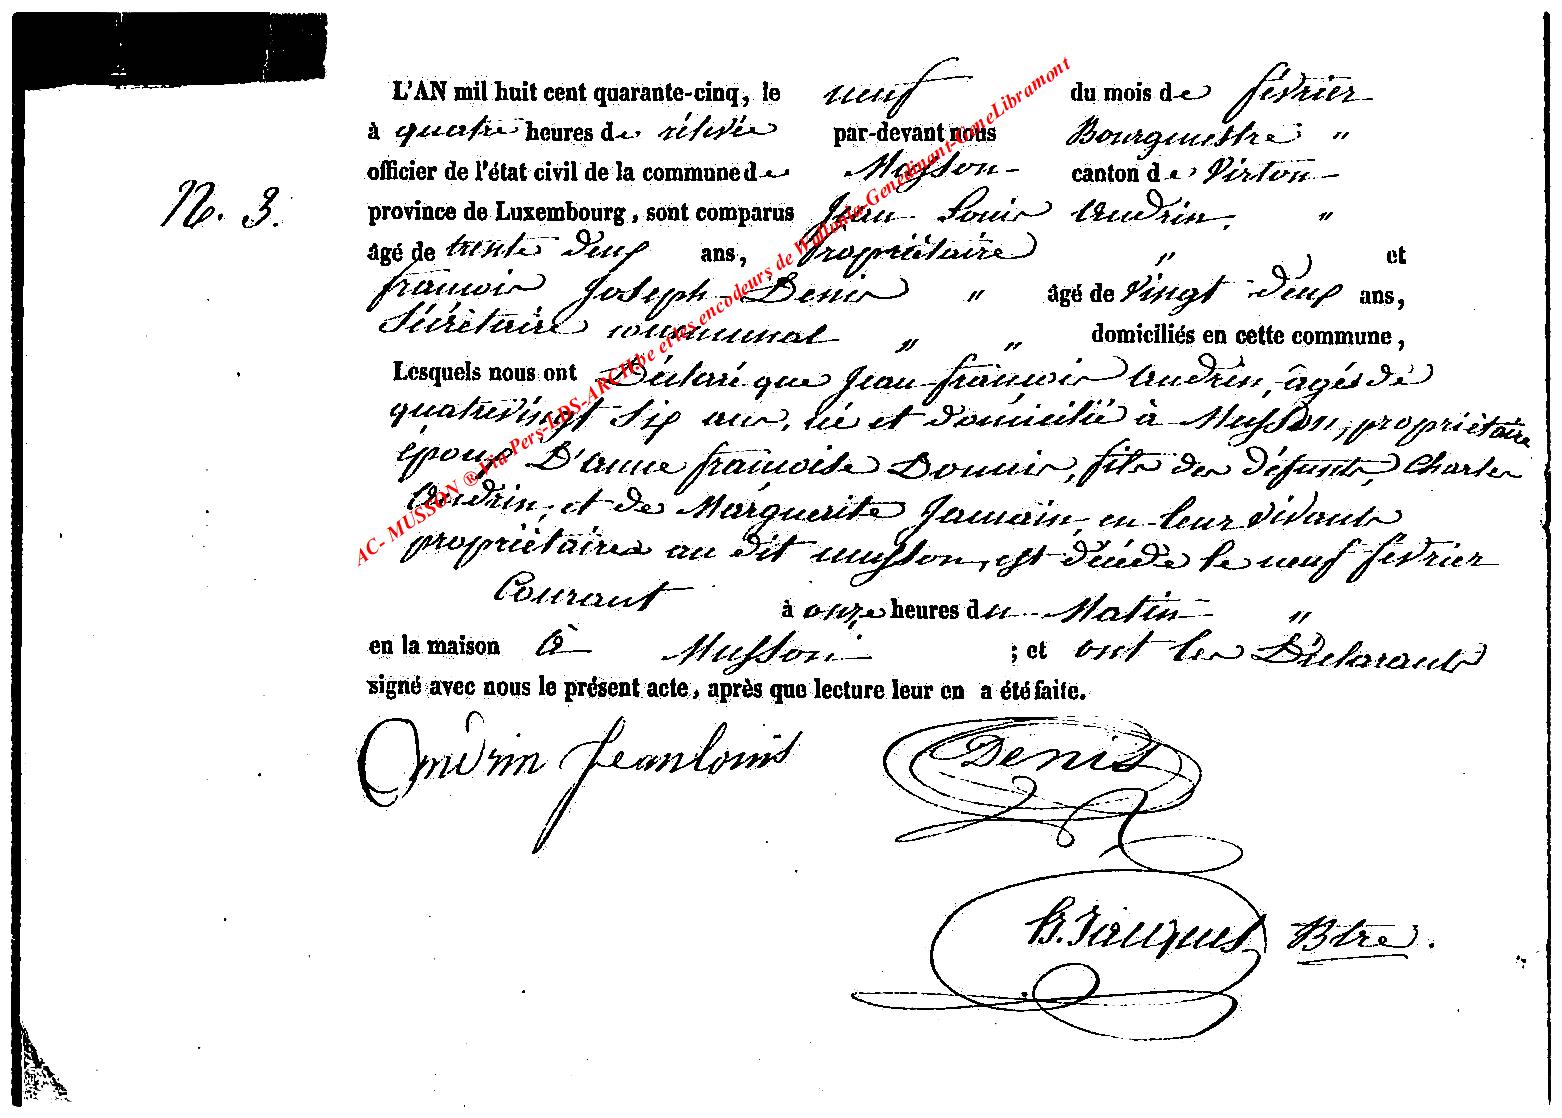 L'AN mil huit cent quarante-cinq, le neuf du mois de février
à quatre heures de rélevée par-devant nous Bourgmestre "
officier de l'état civil de la commune de Musson canton de Virton
N. 3. province de Luxembourg, sont comparus Jean Louis Andrin, "
âgé de trente deux ans, propriétaire " , et
françois Joseph Denis " âgé de vingt deux ans,
Sécrétaire communal " " domiciliés en cette commune,
Lesquels nous ont Déclaré que Jean françois Andrin, âgés de
quatrevingt six ans, né et domicilié à Musson, propriétaire
époux D'anne françoise, fils des défunts, Charles
Andrin, et de Marguerite Jamain, en leur vivants
propriétaires au dit musson, est décédé le neuf février
Courant à onze heures du Matin "
en la maison à Musson ; et ont les Déclarants
signé avec nous le présent acte, après que lecture leur en a été faite.
Andrin Jeanlouis Denis
Jacques Btre.
AC- MUSSON ® Via Pers-LDS-ARCH.be et les encodeurs de Wallonia-Genedinant-GeneLibramont